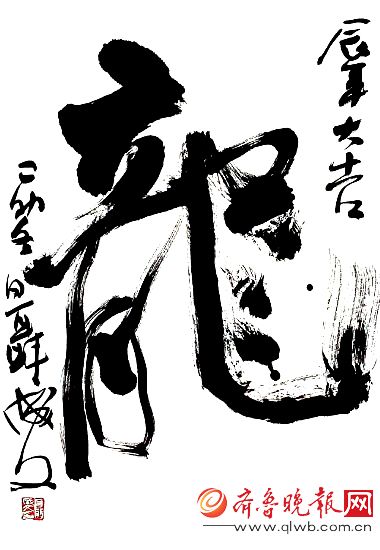 辰年大吉
龍
日聶成文
齐鲁晚报网
www.qlwb.com.cn